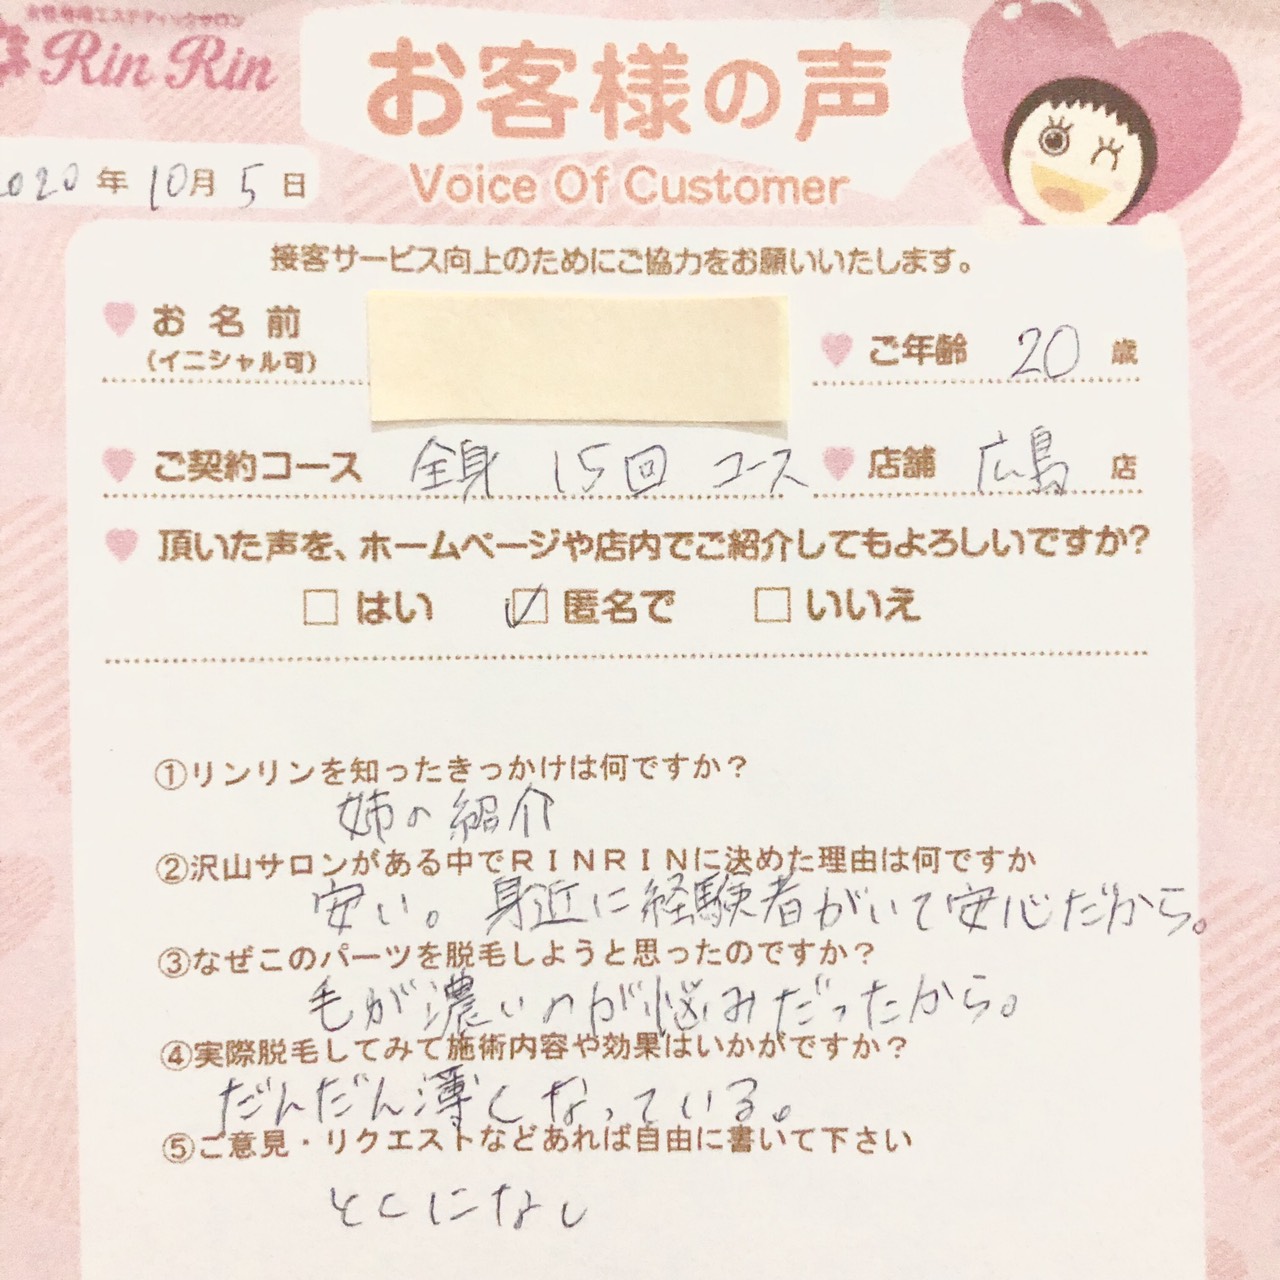 女性専用エステティックサロン
Rin Rin
お客様の声
Voice Of Customer
2020年10月5日
接客サービス向上のためにご協力をお願いいたします。
お名前
(イニシャル可)
ご年齢 20 歳
ご契約コース 全身 15回 コース 店舗 広島 店
頂いた声を、ホームページや店内でご紹介してもよろしいですか?
はい 匿名で いいえ
①リンリンを知ったきっかけは何ですか?
姉の紹介
②沢山サロンがある中でRINRINに決めた理由は何ですか
安い。身近に経験者がいて安心だから。
③なぜこのパーツを脱毛しようと思ったのですか?
毛が濃いのが悩みだったから。
④実際脱毛してみて施術内容や効果はいかがですか?
だんだん薄くなっている。
⑤ご意見・リクエストなどあれば自由に書いて下さい
とくになし